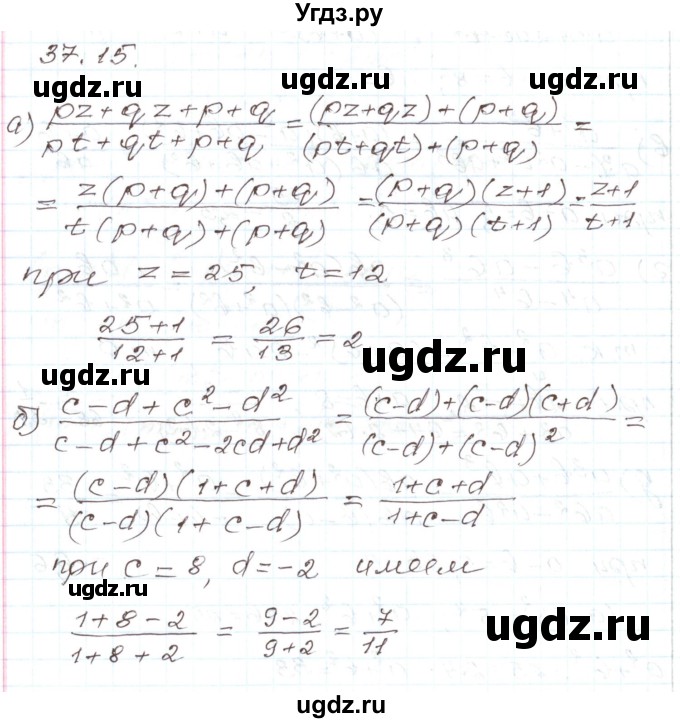 Угдз.ру
37.15.
ugdz.ru ugdz.ru
а) (pz+qz+p+q)/(pt+qt+p+q) = ((pz+qz)+(p+q))/((pt+qt)+(p+q)) =
= (z(p+q)+(p+q))/(t(p+q)+(p+q)) = ((p+q)(z+1))/((p+q)(t+1)) = (z+1)/(t+1)
при z=25, t=12
(25+1)/(12+1) = 26/13 = 2
ugdz.ru
ugdz.ru
б) (c-d+c²-d²)/(c-d+c²-2cd+d²) = ((c-d)+(c-d)(c+d))/((c-d)+(c-d)²) =
= ((c-d)(1+c+d))/((c-d)(1+c-d)) = (1+c+d)/(1+c-d)
при c=8, d=-2 имеем
ugdz.ru ugdz.ru
(1+8-2)/(1+8+2) = (9-2)/(9+2) = 7/11
ugdz.ru
ugdz.ru